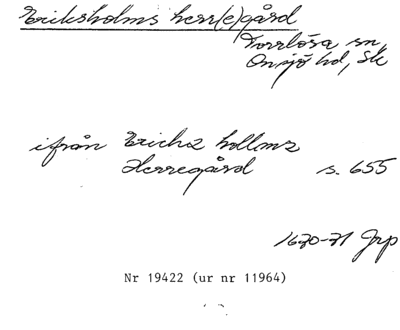 Eriksholms herr(e)gård
Torrlösa sn,
Onsjö hd, Sk
ifrån Erichz hollms
Herregård s. 655
1670-71 Jrp
Nr 19422 (ur nr 11964)